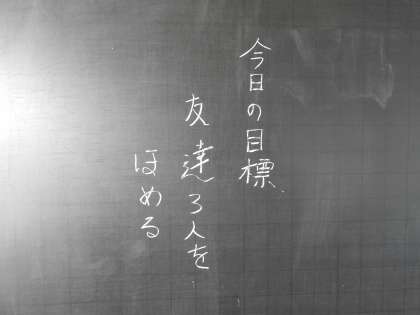 今日の目標
友達3人を
ほめる